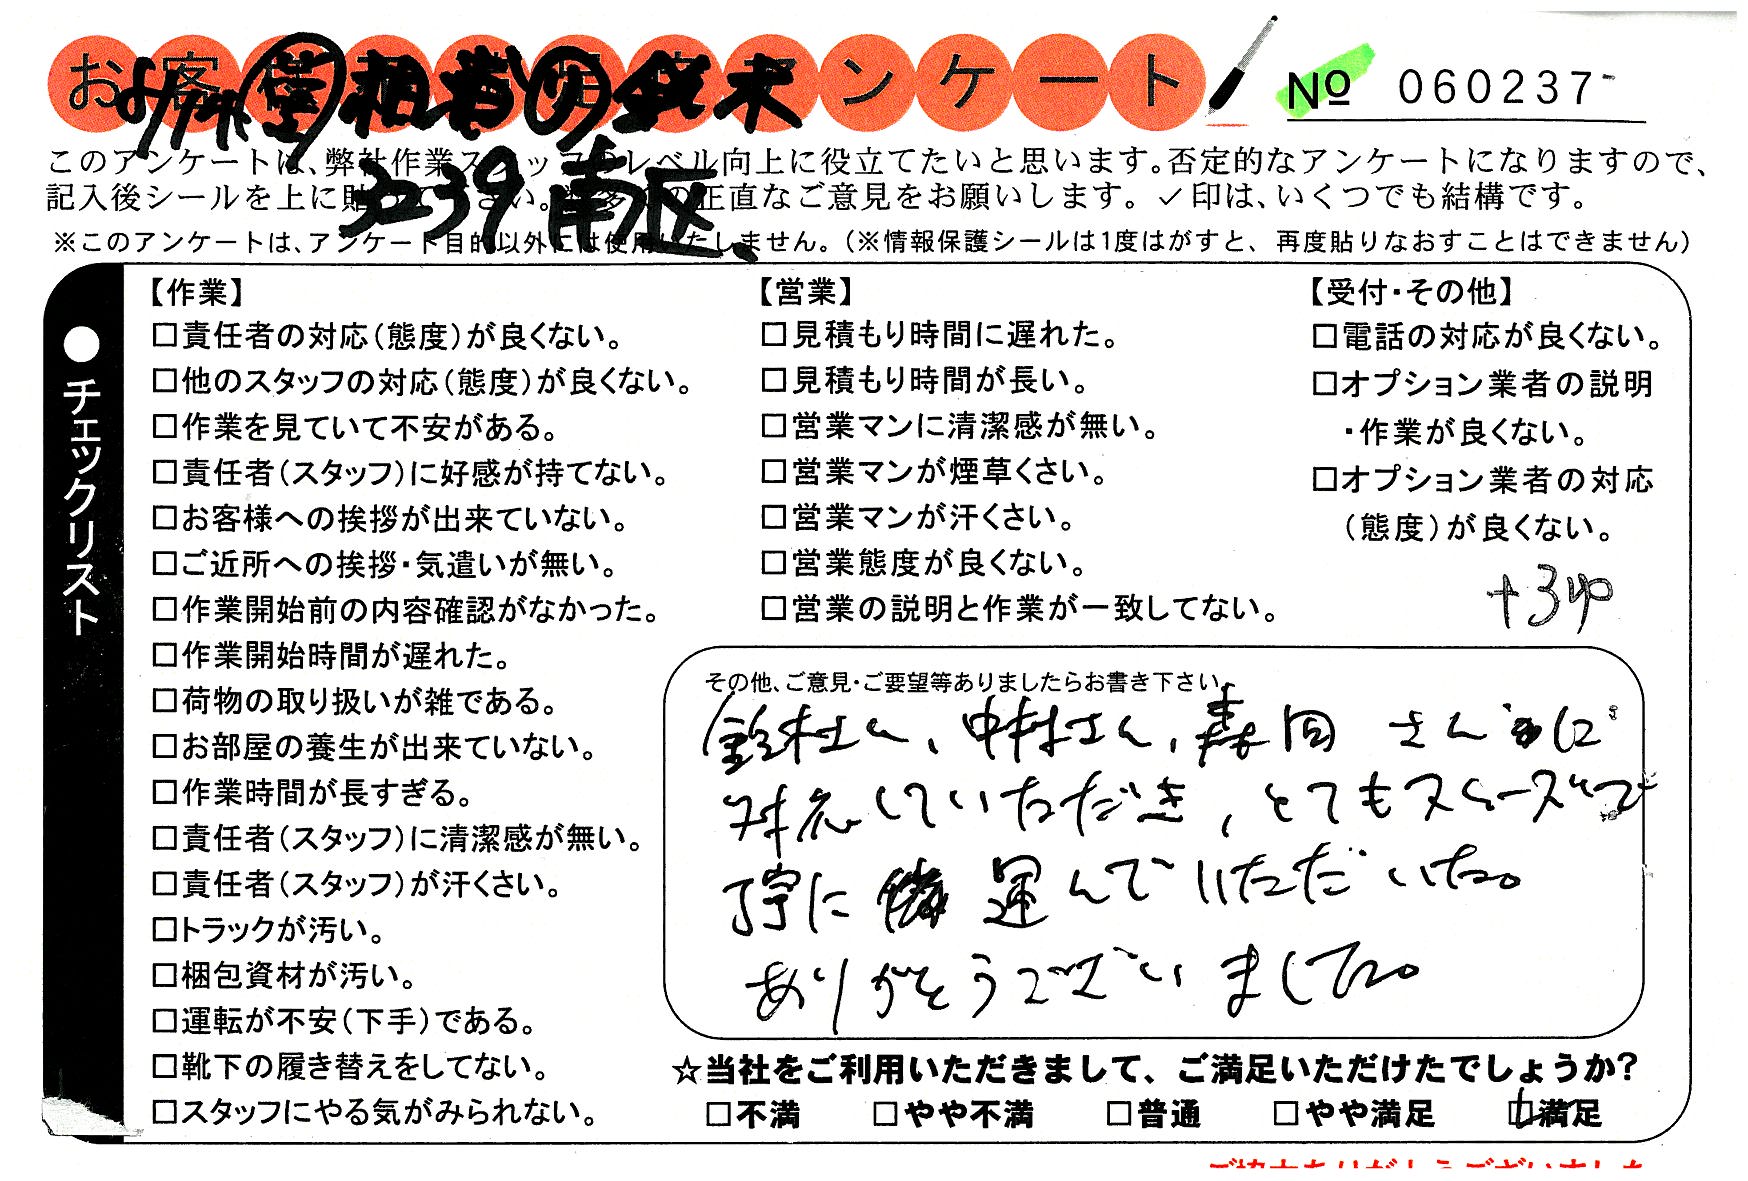 お客様
ンケート
№ 060237
3239 南区、
このアンケートは、弊社作業スタッフのレベル向上に役立てたいと思います。否定的なアンケートになりますので、
記入後シールを上に貼って下さい。の正直なご意見をお願いします。✓印は、いくつでも結構です。
※このアンケートは、アンケート目的以外には使用いたしません。（※情報保護シールは1度はがすと、再度貼りなおすことはできません）
●チェックリスト
【作業】
□責任者の対応（態度）が良くない。
□他のスタッフの対応（態度）が良くない。
□作業を見ていて不安がある。
□責任者（スタッフ）に好感が持てない。
□お客様への挨拶が出来ていない。
□ご近所への挨拶・気遣いが無い。
□作業開始前の内容確認がなかった。
□作業開始時間が遅れた。
□荷物の取り扱いが雑である。
□お部屋の養生が出来ていない。
□作業時間が長すぎる。
□責任者（スタッフ）に清潔感が無い。
□責任者（スタッフ）が汗くさい。
□トラックが汚い。
□梱包資材が汚い。
□運転が不安（下手）である。
□靴下の履き替えをしてない。
□スタッフにやる気がみられない。
【営業】
□見積もり時間に遅れた。
□見積もり時間が長い。
□営業マンに清潔感が無い。
□営業マンが煙草くさい。
□営業マンが汗くさい。
□営業態度が良くない。
□営業の説明と作業が一致してない。
【受付・その他】
□電話の対応が良くない。
□オプション業者の説明
・作業が良くない。
□オプション業者の対応
（態度）が良くない。
その他、ご意見・ご要望等ありましたらお書き下さい。
鈴木さん、中村さん、森岡さんに
対応していただき、とてもスムーズで
丁寧に運んでいただいた。
ありがとうございました。
☆当社をご利用いただきまして、ご満足いただけたでしょうか？
□不満 □やや不満 □普通 □やや満足 ☑満足
ご協力ありがとうございました